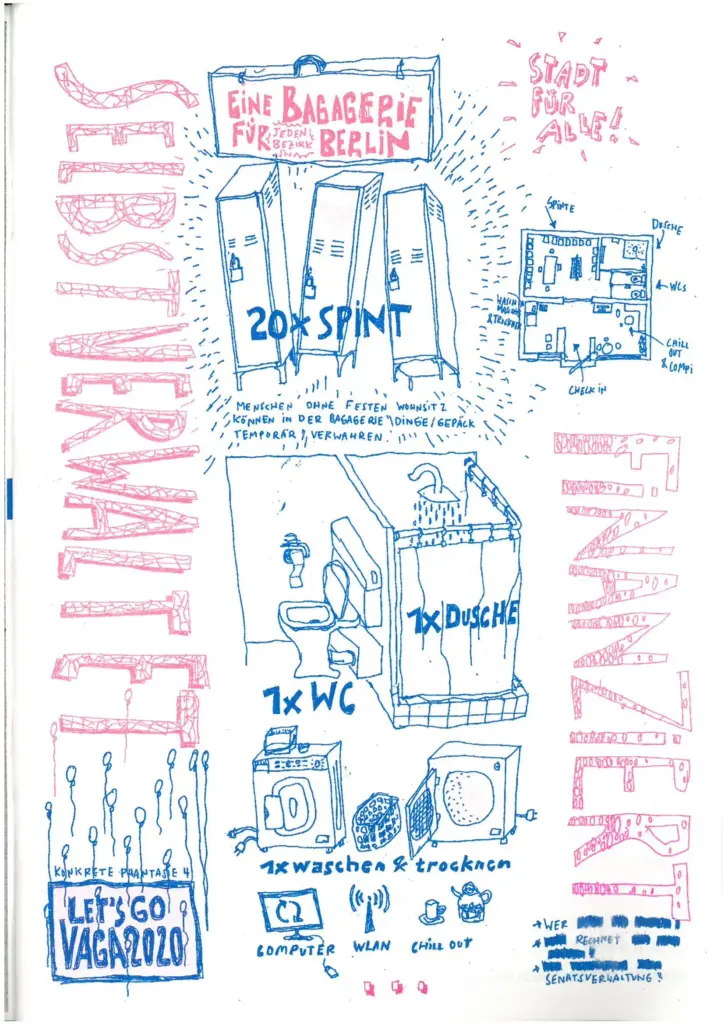 EINE BAGAGERIE
FÜR JEDEN BEZIRK IN BERLIN
STADT
FÜR
ALLE!
SELBSTVERWALTET
SPINTE
DUSCHE
WCS
WASCH
& TROCKNER
CHILL
OUT
& COMPI
CHECK IN
20x SPINT
MENSCHEN OHNE FESTEN WOHNSITZ
KÖNNEN IN DER BAGAGERIE DINGE/GEPÄCK
TEMPORÄR VERWAHREN.
FINANZIERT
1x DUSCHE
1x WC
1x waschen & trocknen
KONKRETE PHANTASIE 4
LET'S GO
VAGA2020
COMPUTER
WLAN
CHILL OUT
→ WER
RECHNET
SENATSVERWALTUNG?